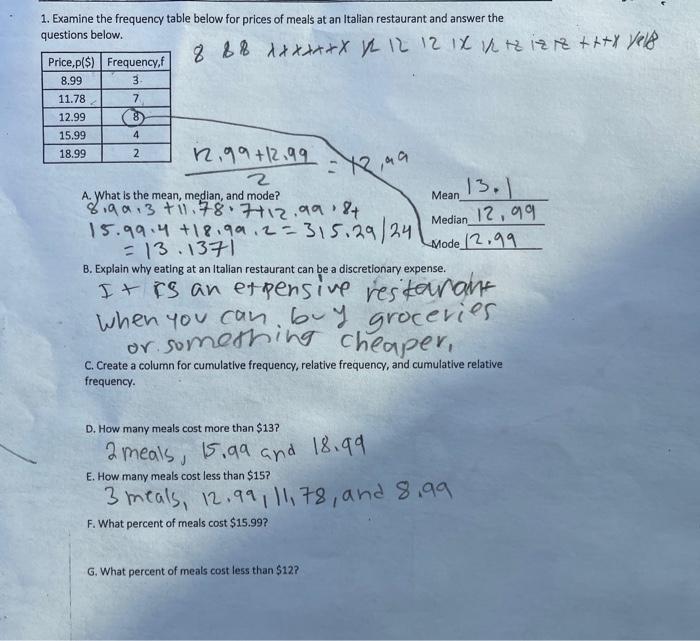 1. Examine the frequency table below for prices of meals at an Italian restaurant and answer the
questions below.
Price,p($) Frequency,f
8.99 3
11.78 7
12.99 8
15.99 4
18.99 2
12.99+12.99 = 12.99
2
A. What is the mean, median, and mode?
Mean 13.1
8.99.3+11.78.7+12.99.8+
Median 12,99
15.99.4+18.99.2=315.29/24
Mode 12.99
=13.1371
B. Explain why eating at an Italian restaurant can be a discretionary expense.
It is an
when you can buy groceries
or something cheaper,
C. Create a column for cumulative frequency, relative frequency, and cumulative relative
frequency.
D. How many meals cost more than $13?
2 meals, 15.99 and 18.99
E. How many meals cost less than $15?
3 meals, 12.99, 11,78, and 8.99
F. What percent of meals cost $15.99?
G. What percent of meals cost less than $12?